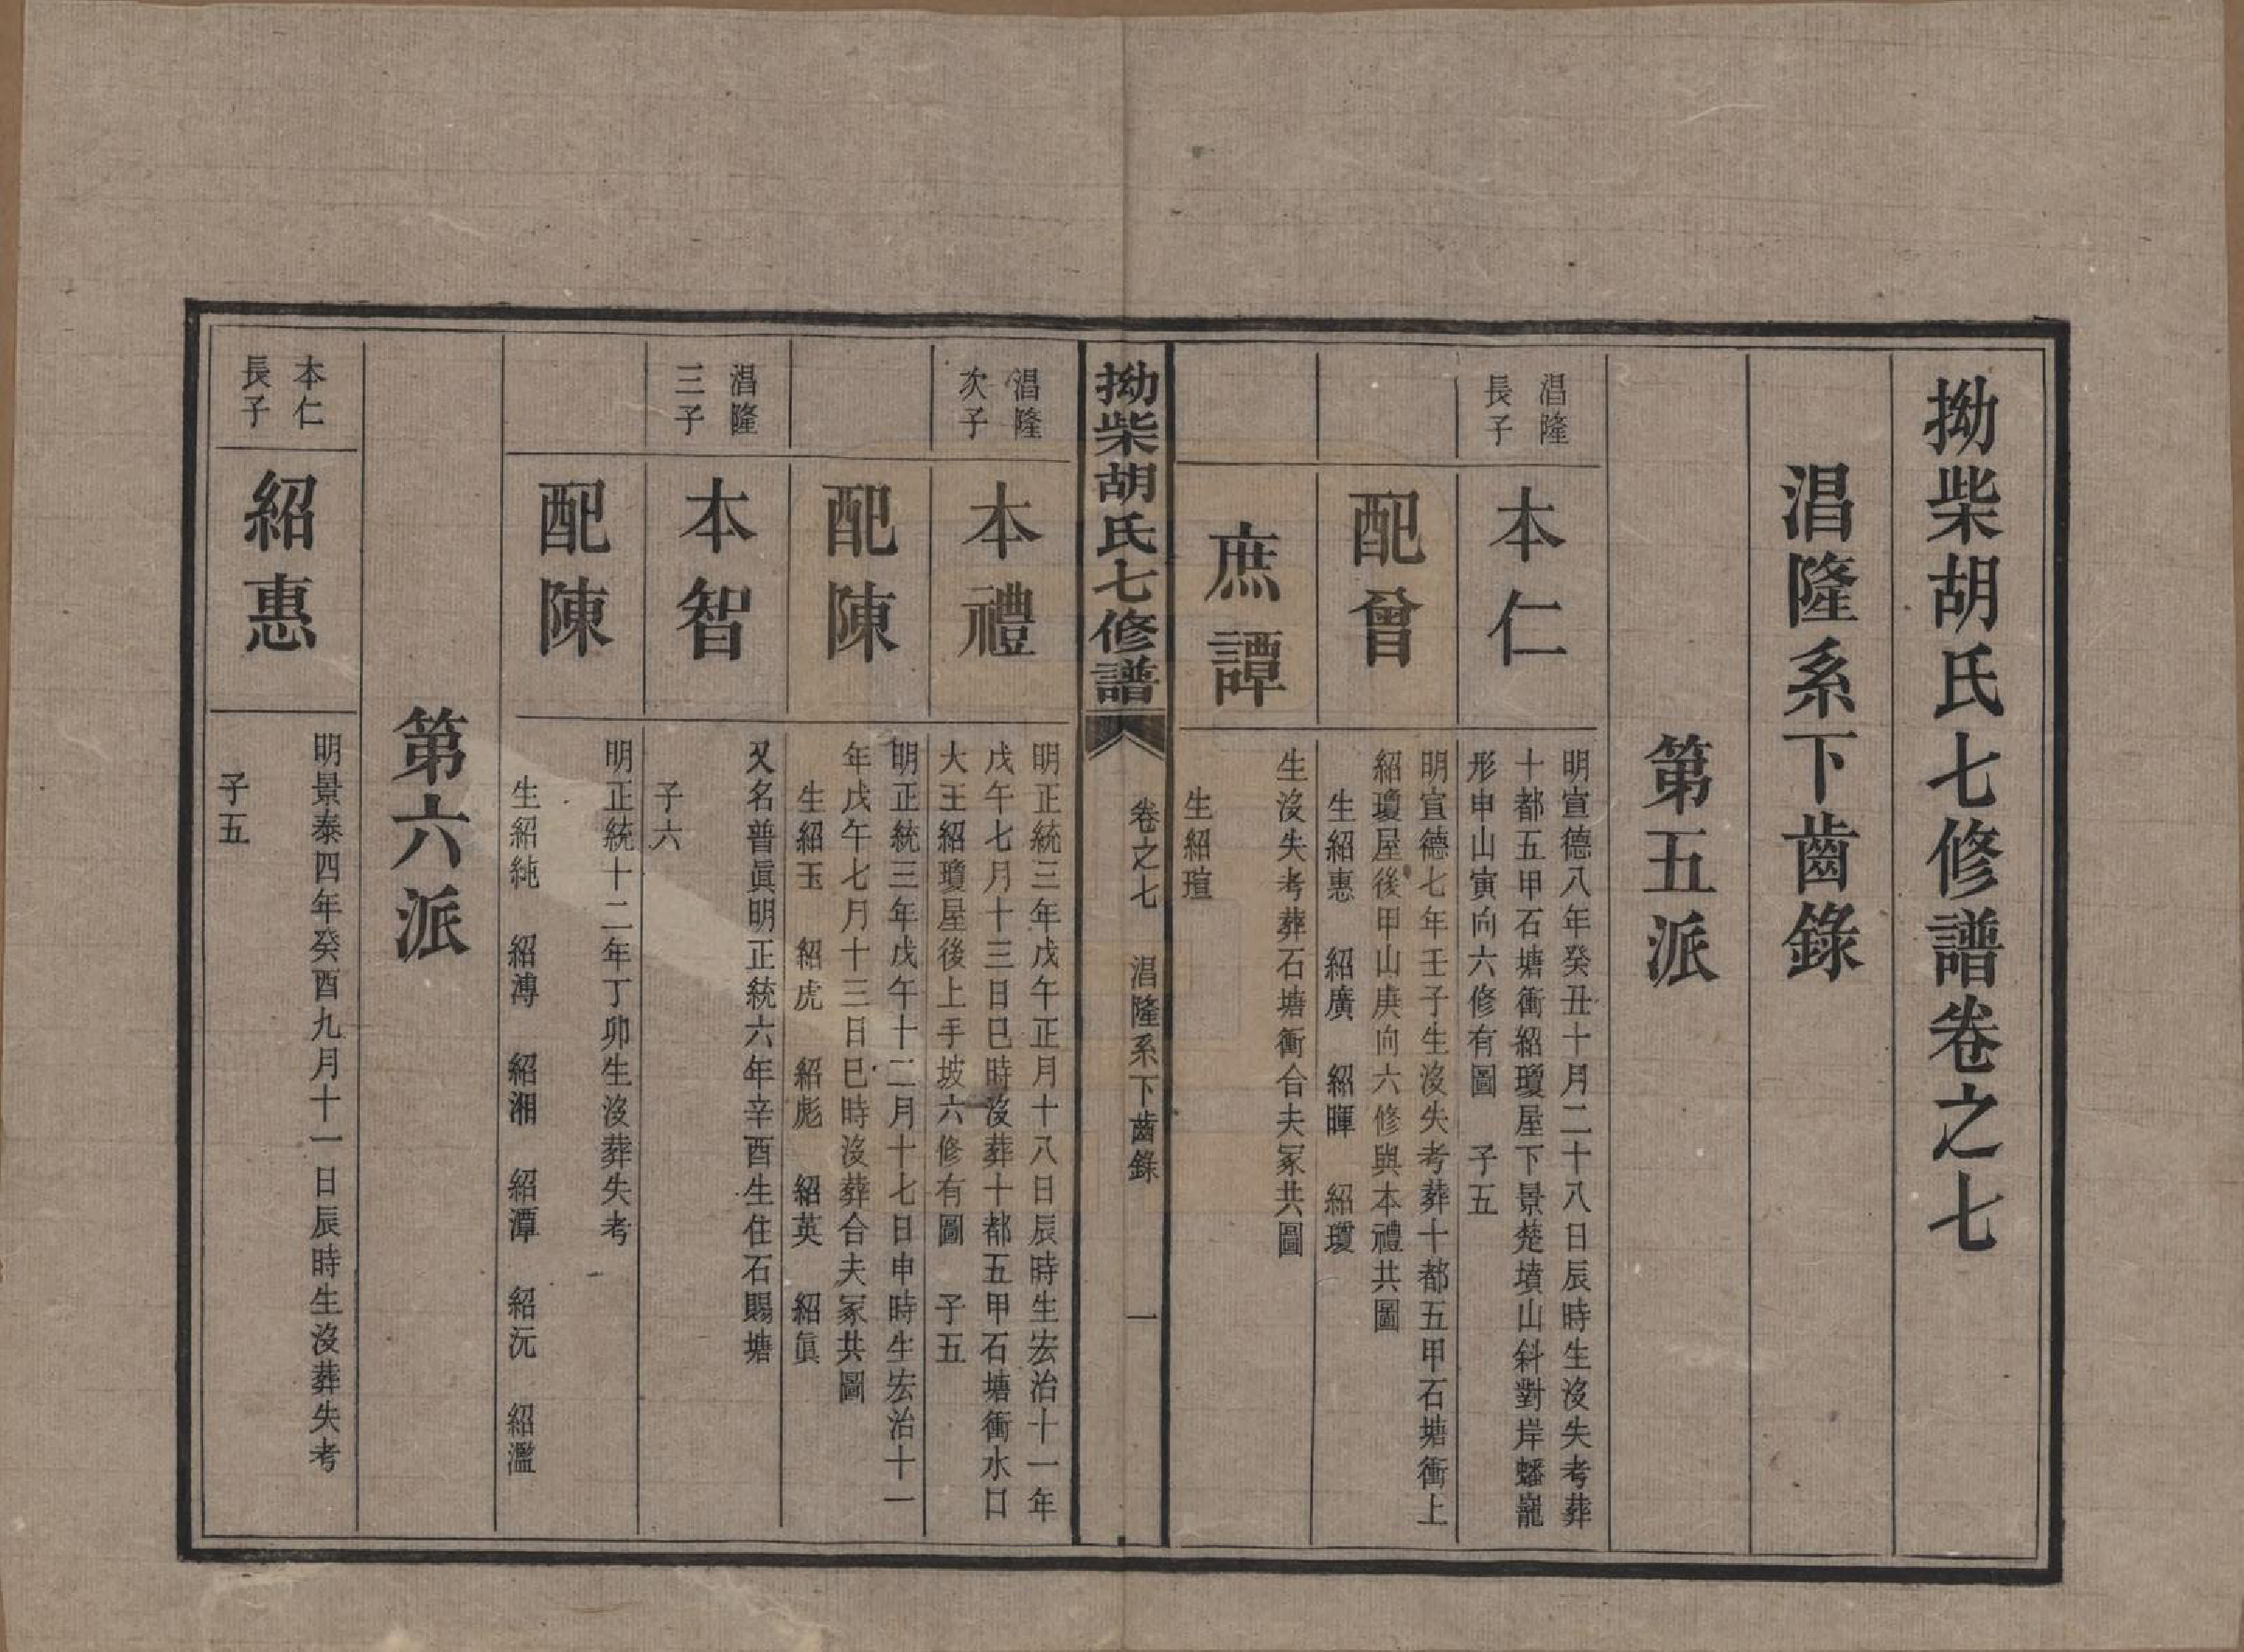 拗柴胡氏七修譜卷之七
淐隆系下齒錄
第五派
淐隆
長子
本仁
明宣德八年癸丑十月二十八日辰時生沒失考葬
十都五甲石塘衝紹瓊屋下景楚墳山斜對岸蟠龍
形申山寅向六修有圖 子五
配曾
明宣德七年壬子生沒失考葬十都五甲石塘衝上
紹瓊屋後甲山庚向六修與本禮共圖
生紹惠 紹廣 紹暉 紹瓊
庶譚
生沒失考葬石塘衝合夫冢共圖
生紹瑄
拗柴胡氏七修譜
卷之七 淐隆系下齒錄 一
淐隆
次子
本禮
明正統三年戊午正月十八日辰時生宏治十一年
戊午七月十三日巳時沒葬十都五甲石塘衝水口
大王紹瓊屋後上手坡六修有圖 子五
配陳
明正統三年戊午十二月十七日申時生宏治十一
年戊午七月十三日巳時沒葬合夫冢共圖
生紹玉 紹虎 紹彪 紹英 紹眞
淐隆
三子
本智
又名普眞明正統六年辛酉生住石賜塘
子六
配陳
明正統十二年丁卯生沒葬失考
生紹純 紹溥 紹湘 紹潭 紹沅 紹濫
第六派
本仁
長子
紹惠
明景泰四年癸酉九月十一日辰時生沒葬失考
子五